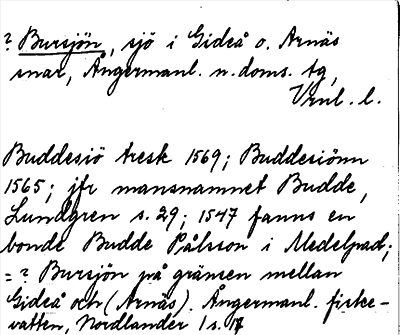 ? Bursjön, sjö i Gideå o. Arnäs
snar, Ångermanl. n. doms. tg,
Vrnl. l.
Buddesiö tresk 1569; Buddesiönn
1565; jfr mansnamnet Budde,
Lundgren s. 29; 1547 fanns en
bonde Budde Pålsson i Medelpad;
= ? Bursjön på gränsen mellan
Gideå och (Arnäs). Ångermanl. fiske-
vatten, Nordlander 1 s. 17